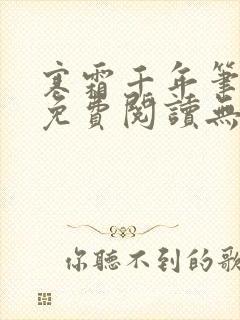 寒霜千年筆
免費閱讀無
你聽不到的歌